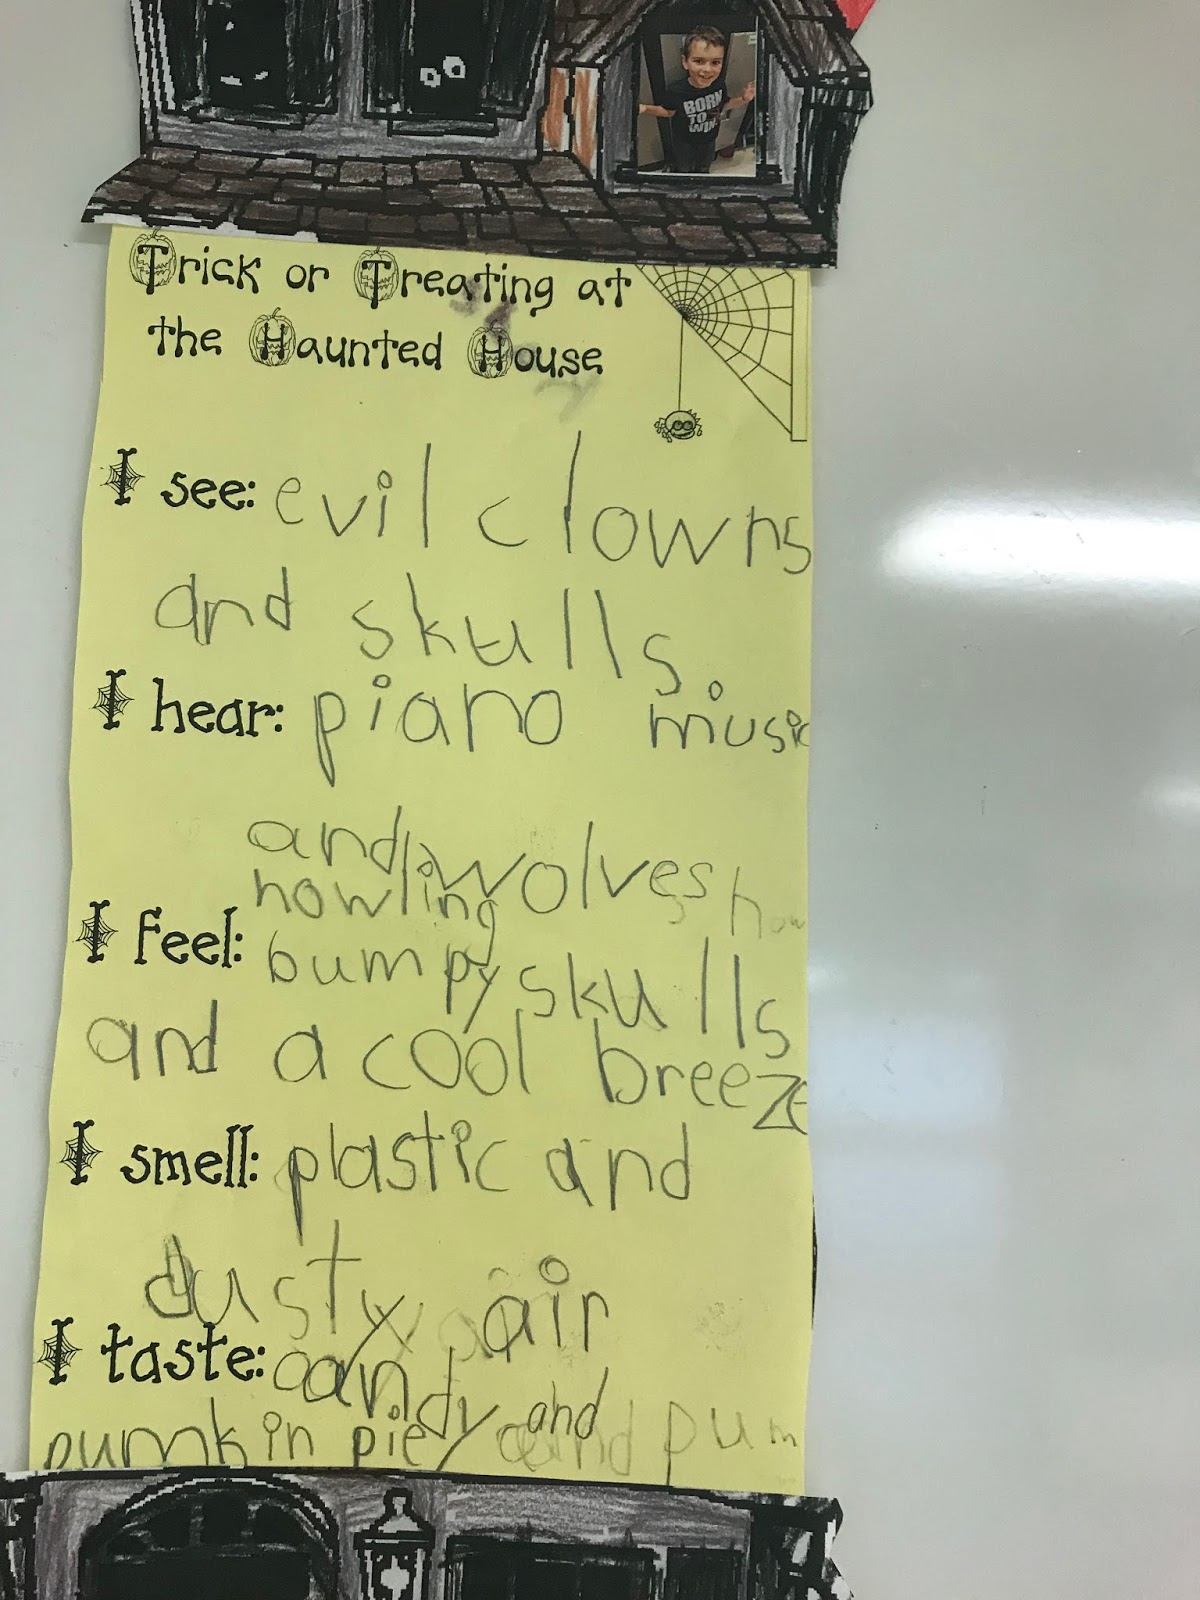 BORN
TO
WIN
Trick or Treating at
the Haunted House
I see: evil clowns
and skulls.
I hear: piano music
and wolves how
howling
I feel: bumpy skulls
and a cool breeze
I smell: plastic and
dusty air
I taste: candy and
pumkin pie and pum